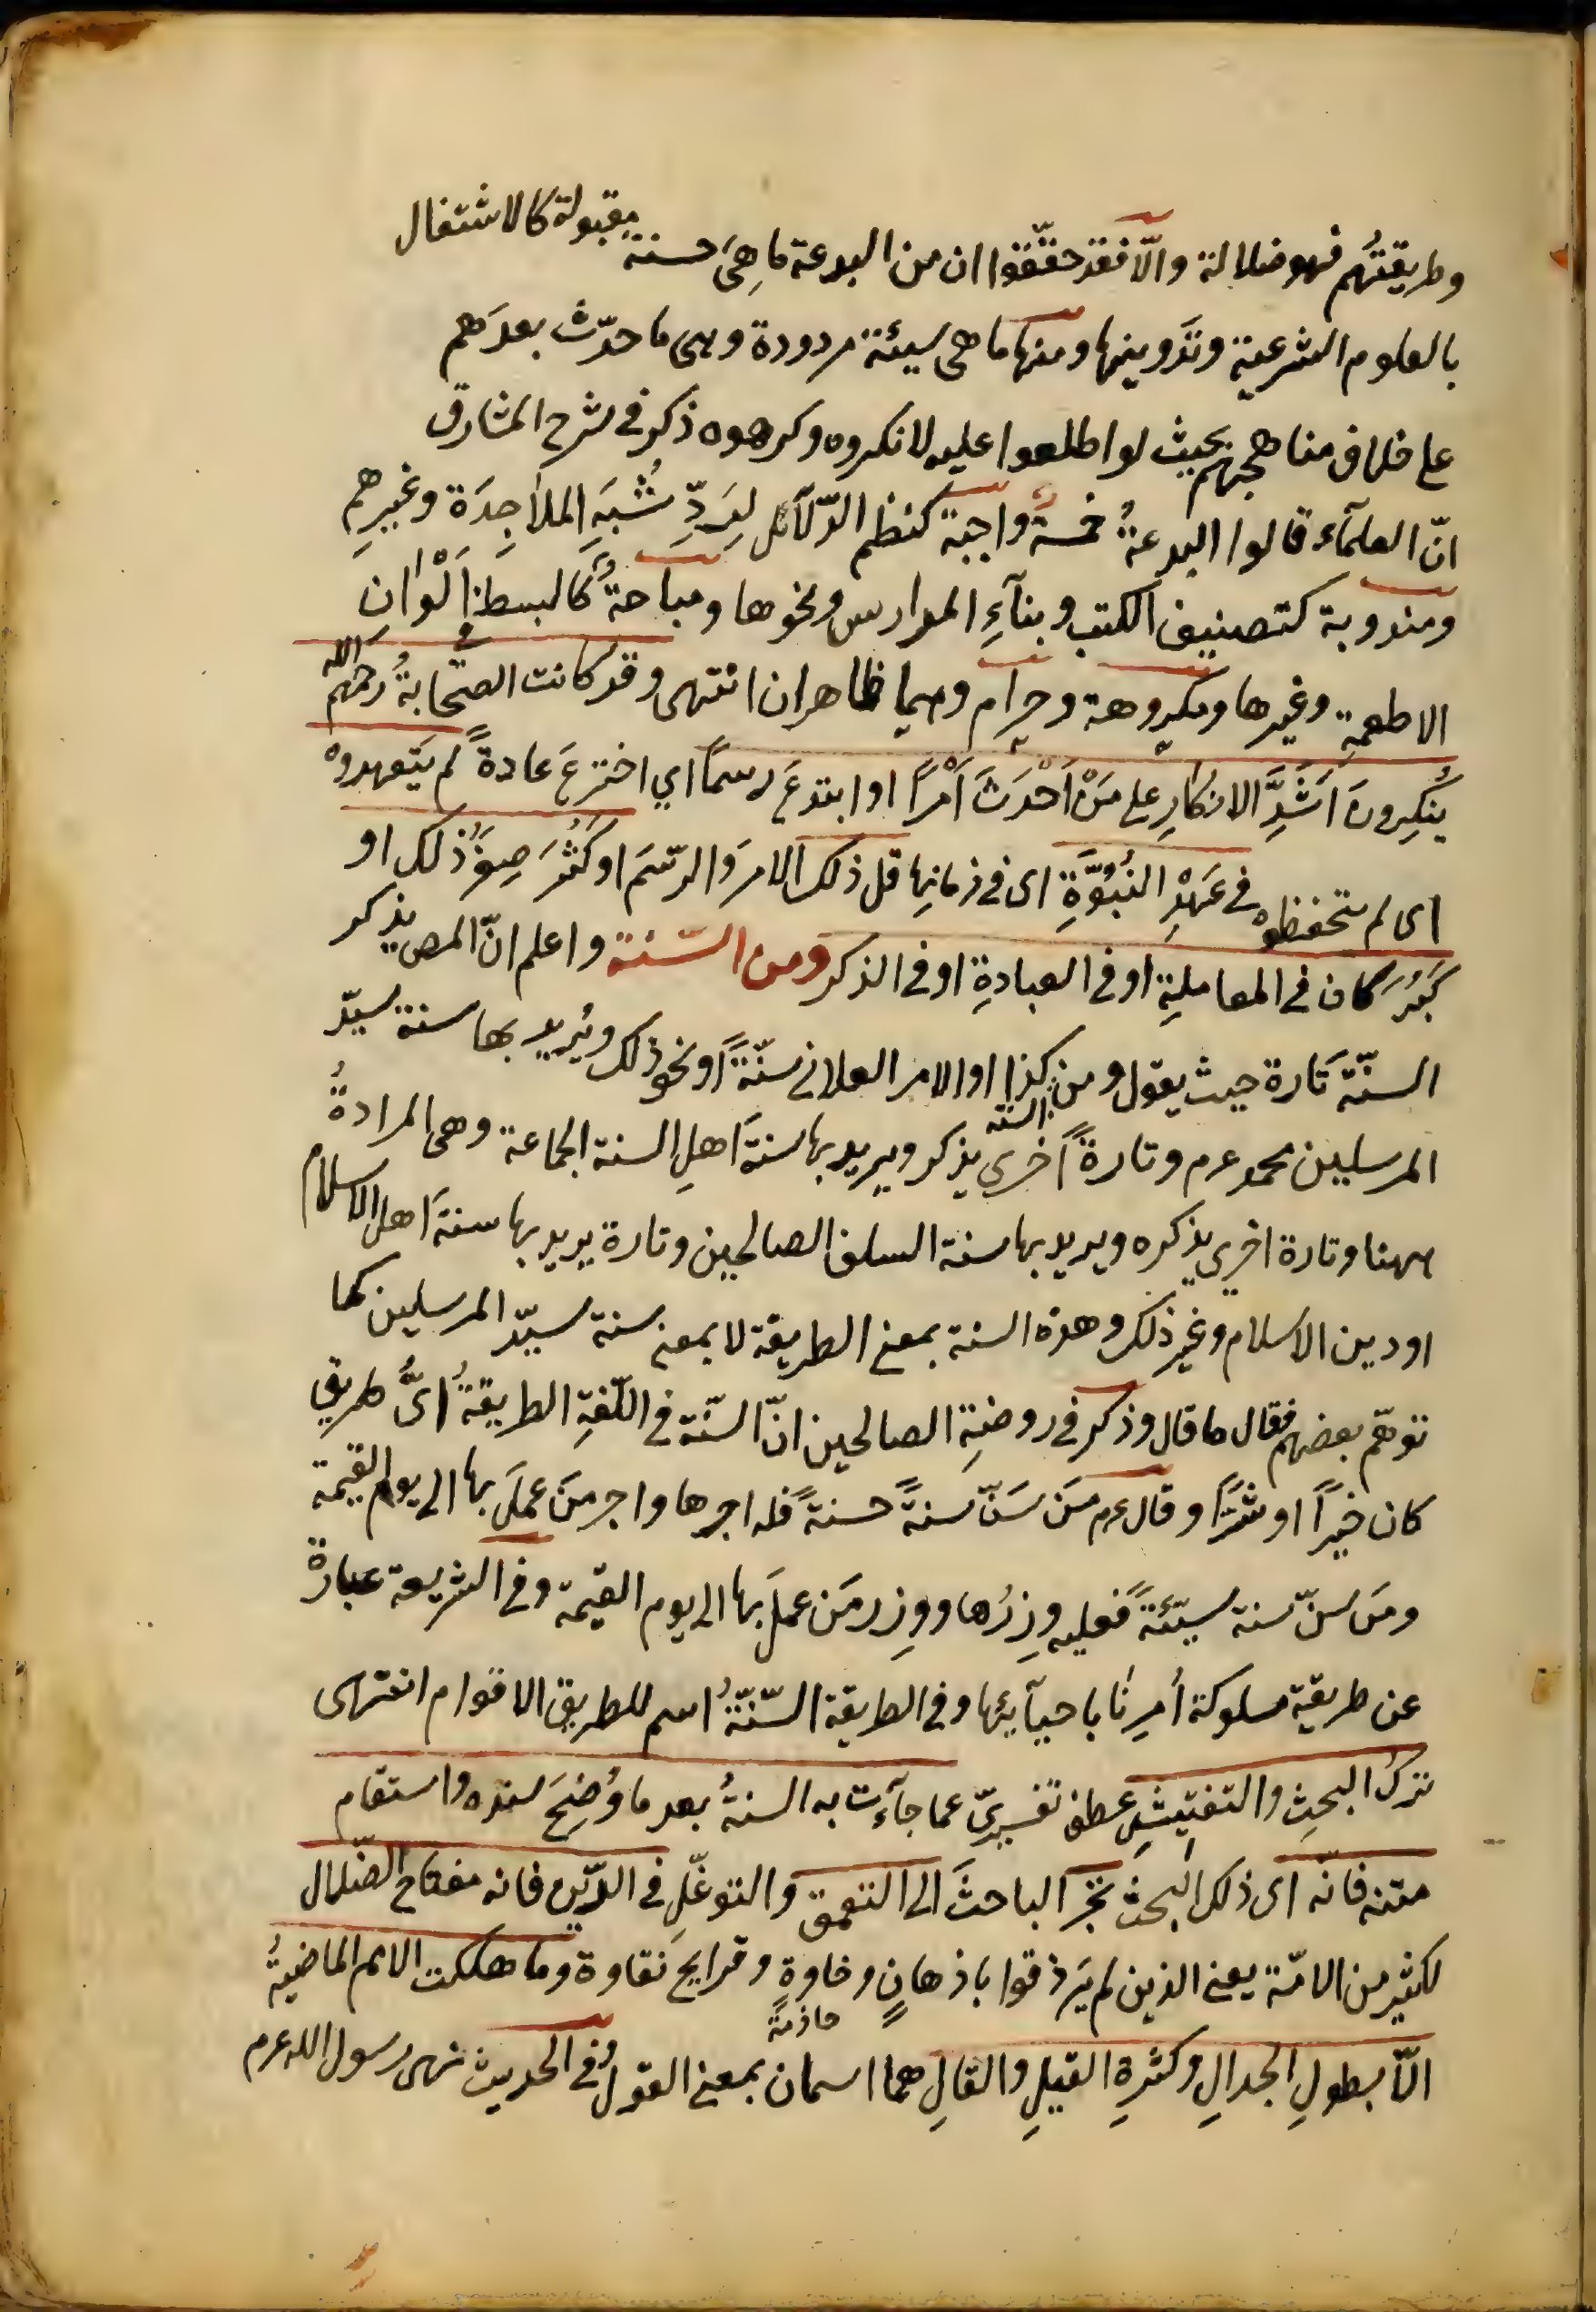 وطريقتهُم فهو ضلالة والّا فقد حقّقوا ان من البدعة ما هِيَ حسنة مقبولة كالاشتغال
بالعلوم الشرعية وتَدوينها ومنها ما هى سيئة مردودة وهى ما حدّث بعدَهم
على خلاف مناهجهم بحيث لو اطلعوا عليه لانكروه وكرهوه ذكر فى شرح المشارق
انّ العلمآء قالوا البدعةُ خمسةٌ واجبة كنظم الدّلآئل لِرَدِّ شُبَهِ الملاحِدَة وغيرِهِم
ومندوبة كتصنيف الكتب وبنآءِ المدارس ونحوها ومباحةٌ كالبسط فى اَلْوَانِ
الاطعمةِ وغيرها ومكروهة وحرام وهما ظاهران انتهى وقد كانت الصّحابةُ رحمهم الله
يُنكِرونَ اَشَدَّ الانكارِ على مَنْ اَحْدَثَ اَمْراً او ابتدعَ رسماً اي اخترعَ عادةً لم يَتعهدوه
اى لم يتحفظوه فى عَهْدِ النُبُوَّةِ اى فى زمانها قل ذلك الامرَ والرّسمَ او كَثُرَ صِغَرُ ذلك او
كَبُرَ كان فى المعاملةِ او فى العبادةِ او فى الذكر ومن السّنة واعلم انّ المص يذكر
السنّة تَارة حيث يقول ومن السنة كذا او الامر الفلانى سنّةً او نحو ذلك ويُريد بها سنة سيّد
المرسلين محمد عم وتارةً اُخرى يذكر ويريد بها سنةَ اهلِ السنة الجماعة وهى المرادةُ
ههنا وتارة اخرى يذكره ويريد بها سنة السلف الصالحين وتارة يريد بها سنةَ اهل الاسلام
او دين الاسلام وغير ذلك وهذه السنة بمعنى الطريقة لا بمعنى سنة سيّد المرسلين كما
توهّم بعضهم فقال ما قال وذكر فى روضةِ الصالحين انّ السنّة فى اللّغةِ الطريقةُ اىَّ طريق
كان خيراً او شرّاً وقال عم مَن سَنّ سنةً حسنةً فله اجرها واجر مَن عمَلَ بها الى يوم القيمة
ومَن سنّ سنة سيّئةً فعليه وِزرُها ووِزر مَن عملَ بها الى يوم القيمة وفى الشريعة عبارة
عن طريقة مسلوكة اُمِرنَا باحيآئها وفى الطريقة السّنّةُ اسم للطريق الاقوام انتهى
تركُ البحثِ والتفتيشِ عطف تفسيريّ عما جآءت به السنةُ بعد ما وُضِحَ سنده واستقام
متنه فانّه اى ذلك البحث يجرّ الباحثَ الى التعمق والتوغّلِ فى الدّين فانه مفتاح الضّلال
لكثير من الامّة يعنى الذين لم يَرذقوا باذهانٍ وخاوةٍ وقرايح نقاوة وما هلكت الامم الماضيةُ
حاذقة
الّا بطولِ الجدالِ وكثرةِ القيلِ والقالِ هما اسمان بمعنى القول وفى الحديث نهى رسول الله عم